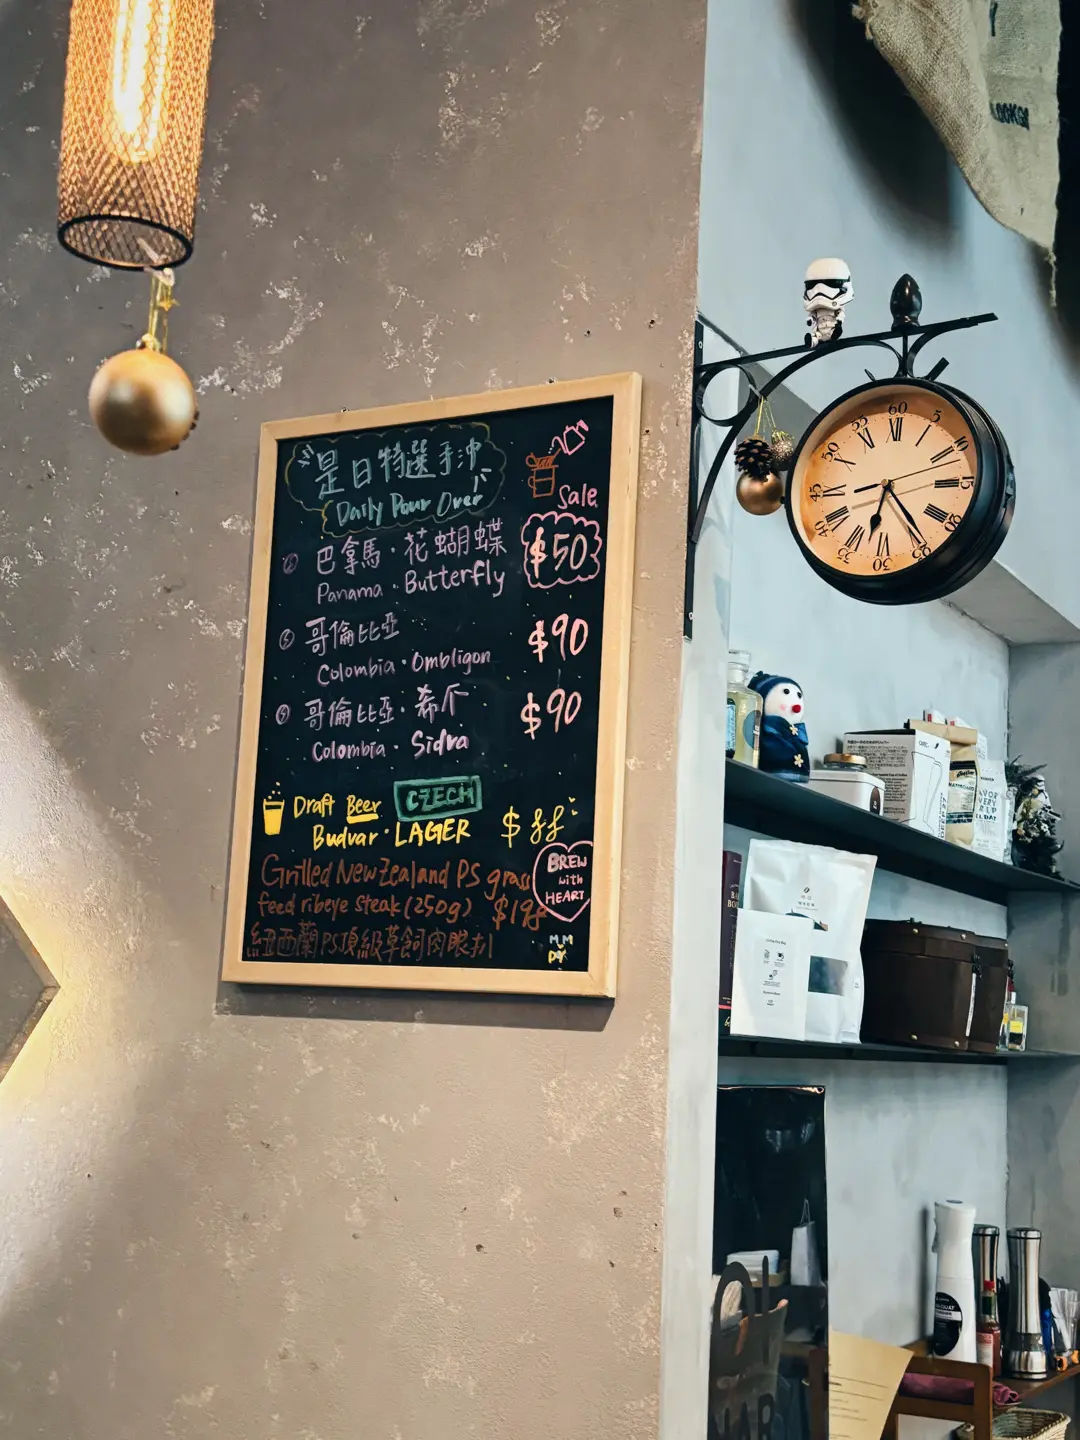 是日特選手沖
Daily Pour Over
Sale
巴拿馬·花蝴蝶
$50
Panama · Butterfly
哥倫比亞
$90
Colombia · Ombligon
哥倫比亞·希爪
$90
Colombia · Sidra
Draft Beer CZECH
Budvar · LAGER $88
Grilled New Zealand PS grass
feed ribeye steak (250g) $198
紐西蘭PS頂級草飼肉眼扒
BREW
with
HEART
60
5
10
15
20
25
30
35
40
45
50
55
XII